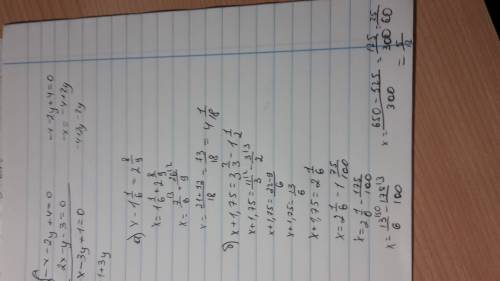 -x-2y+4=0
2x-y-3=0
x-3y+1=0
1+3y
-x-2y+4=0
-x=-4+2y
-4+2y-2y
а) x-1 1/6=2 8/9
x=1 1/6+2 8/9
x=7/6+26/9
x=21+52/18=73/18=4 1/18
б) x+1,75=3 2/3-1 1/2
x+1,75=11/3-3/2
x+1,75=22-9/6
x+1,75=13/6
x+1,75=2 1/6
x=2 1/6-1 75/100
x=2 1/6-175/100
x=13/6-175/100
x=650-525/300=125/300=25/60
=5/12